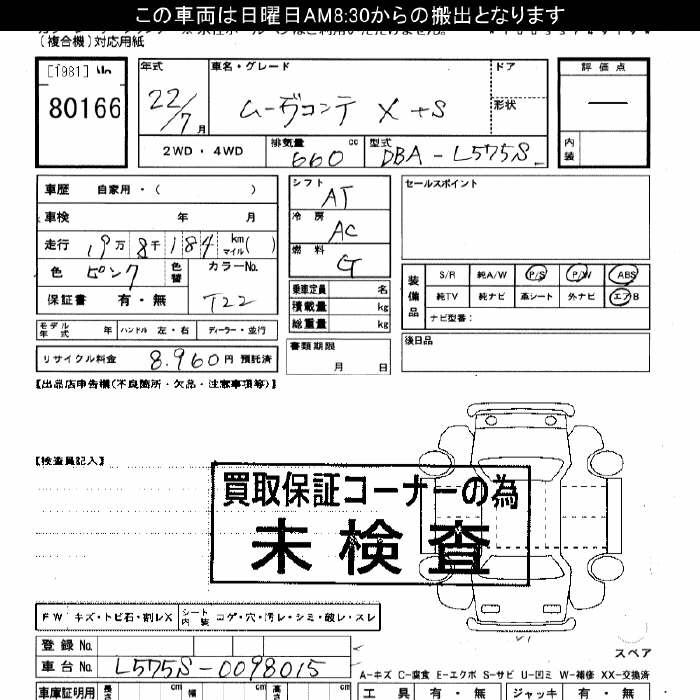 この車両は日曜日AM8:30からの搬出となります
(複合機)対応用紙
[1981]
80166
年式
22/7月
車名・グレード
ムーヴコンテ X+S
ドア
形状
評価点
内装
2WD・4WD
排気量
660 cc
型式
DBA-L575S
車歴 自家用・( )
車検 年 月
走行 19万8千184 km マイル( )
色 ピンク
色替
カラーNo.
T22
保証書 有・無
シフト AT
冷房 AC
燃料 G
乗車定員 名
積載量 kg
総重量 kg
セールスポイント
装備品
S/R 純A/W P/S P/W ABS
純TV 純ナビ 革シート 外ナビ エアB
ナビ型番:
モデル年式 年 ハンドル 左・右 ディーラー・並行
リサイクル料金 8.960円 預託済
書類期限
月 日
後日品
【出品店申告欄(不良箇所・欠品・注意事項等)】
【検査員記入】
買取保証コーナーの為
未検査
FW キズ・トビ石・割レX
シート内装 コゲ・穴・汚レ・シミ・破レ・スレ
スペア
登録No.
車台No. L575S-0098015
A-キズ C-腐食 E-エクボ S-サビ U-凹ミ W-補修 XX-交換済
車庫証明用 長さ cm 幅 cm 高さ cm
工具 有・無 ジャッキ 有・無